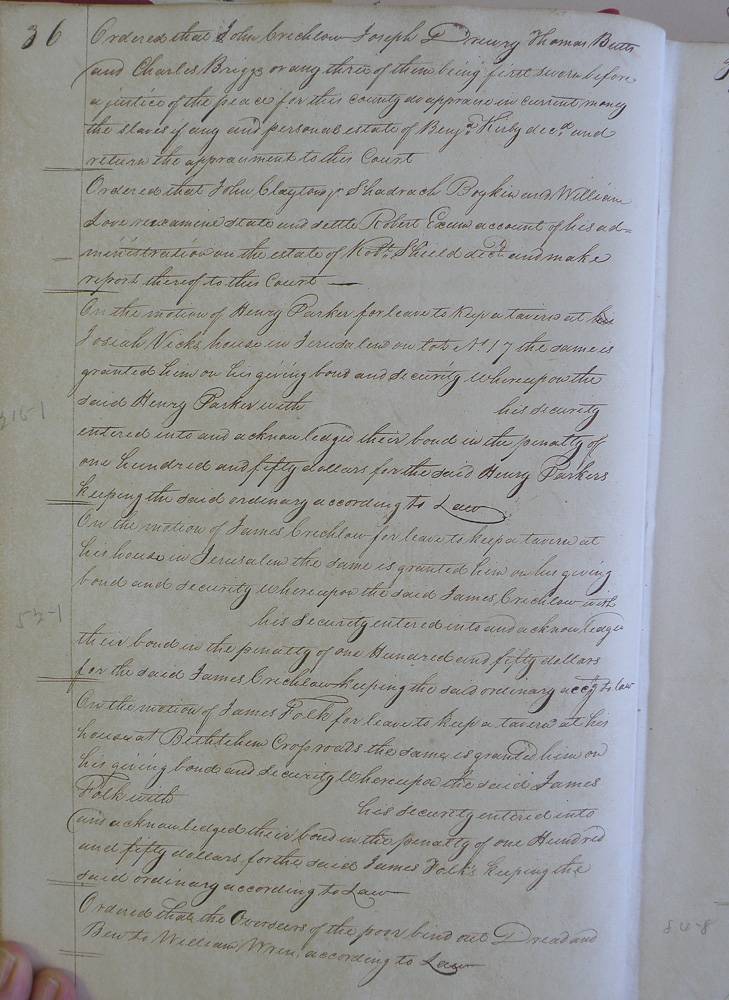 36
Ordered that John Crichlow Joseph Drewry Thomas Butts
and Charles Briggs or any three of them being first sworn before
a justice of the peace for this county do appraise in current money
the slaves if any and personal estate of Benja. Kirby decd. and
return the appraisment to this Court
Ordered that John Clayton Shadrach Boykin and William
Love reexamine state and settle Robert Exum account of his ad=
ministration on the estate of Robt. Shield decd. and make
report thereof to this Court —
On the motion of Henry Parker for leave to keep a tavern at
Josiah Vicks house in Jerusalem on lot No. 17 the same is
granted him on his giving bond and security Whereupon the
said Henry Parker with his security
entered into and acknowledged their bond in the penalty of
one hundred and fifty dollars for the said Henry Parkers
keeping the said ordinary according to Law
On the motion of James Crichlow for leave to keep a tavern at
his house in Jerusalem the same is granted him on his giving
bond and security Whereupon the said James Crichlow with
his security entered into and acknowledge
their bond in the penalty of one Hundred and fifty dollars
for the said James Crichlow keeping the said ordinary accg. to law
On the motion of James Folk for leave to keep a tavern at his
house at Bethlehem Crossroads the same is granted him on
his giving bond and security Whereupon the said James
Folk with his security entered into
and acknowledged their bond in the penalty of one Hundred
and fifty dollars for the said James Folk's keeping the
said ordinary according to Law
Ordered that the Overseers of the poor bind out Dread and
Ben to William Wren, according to Law